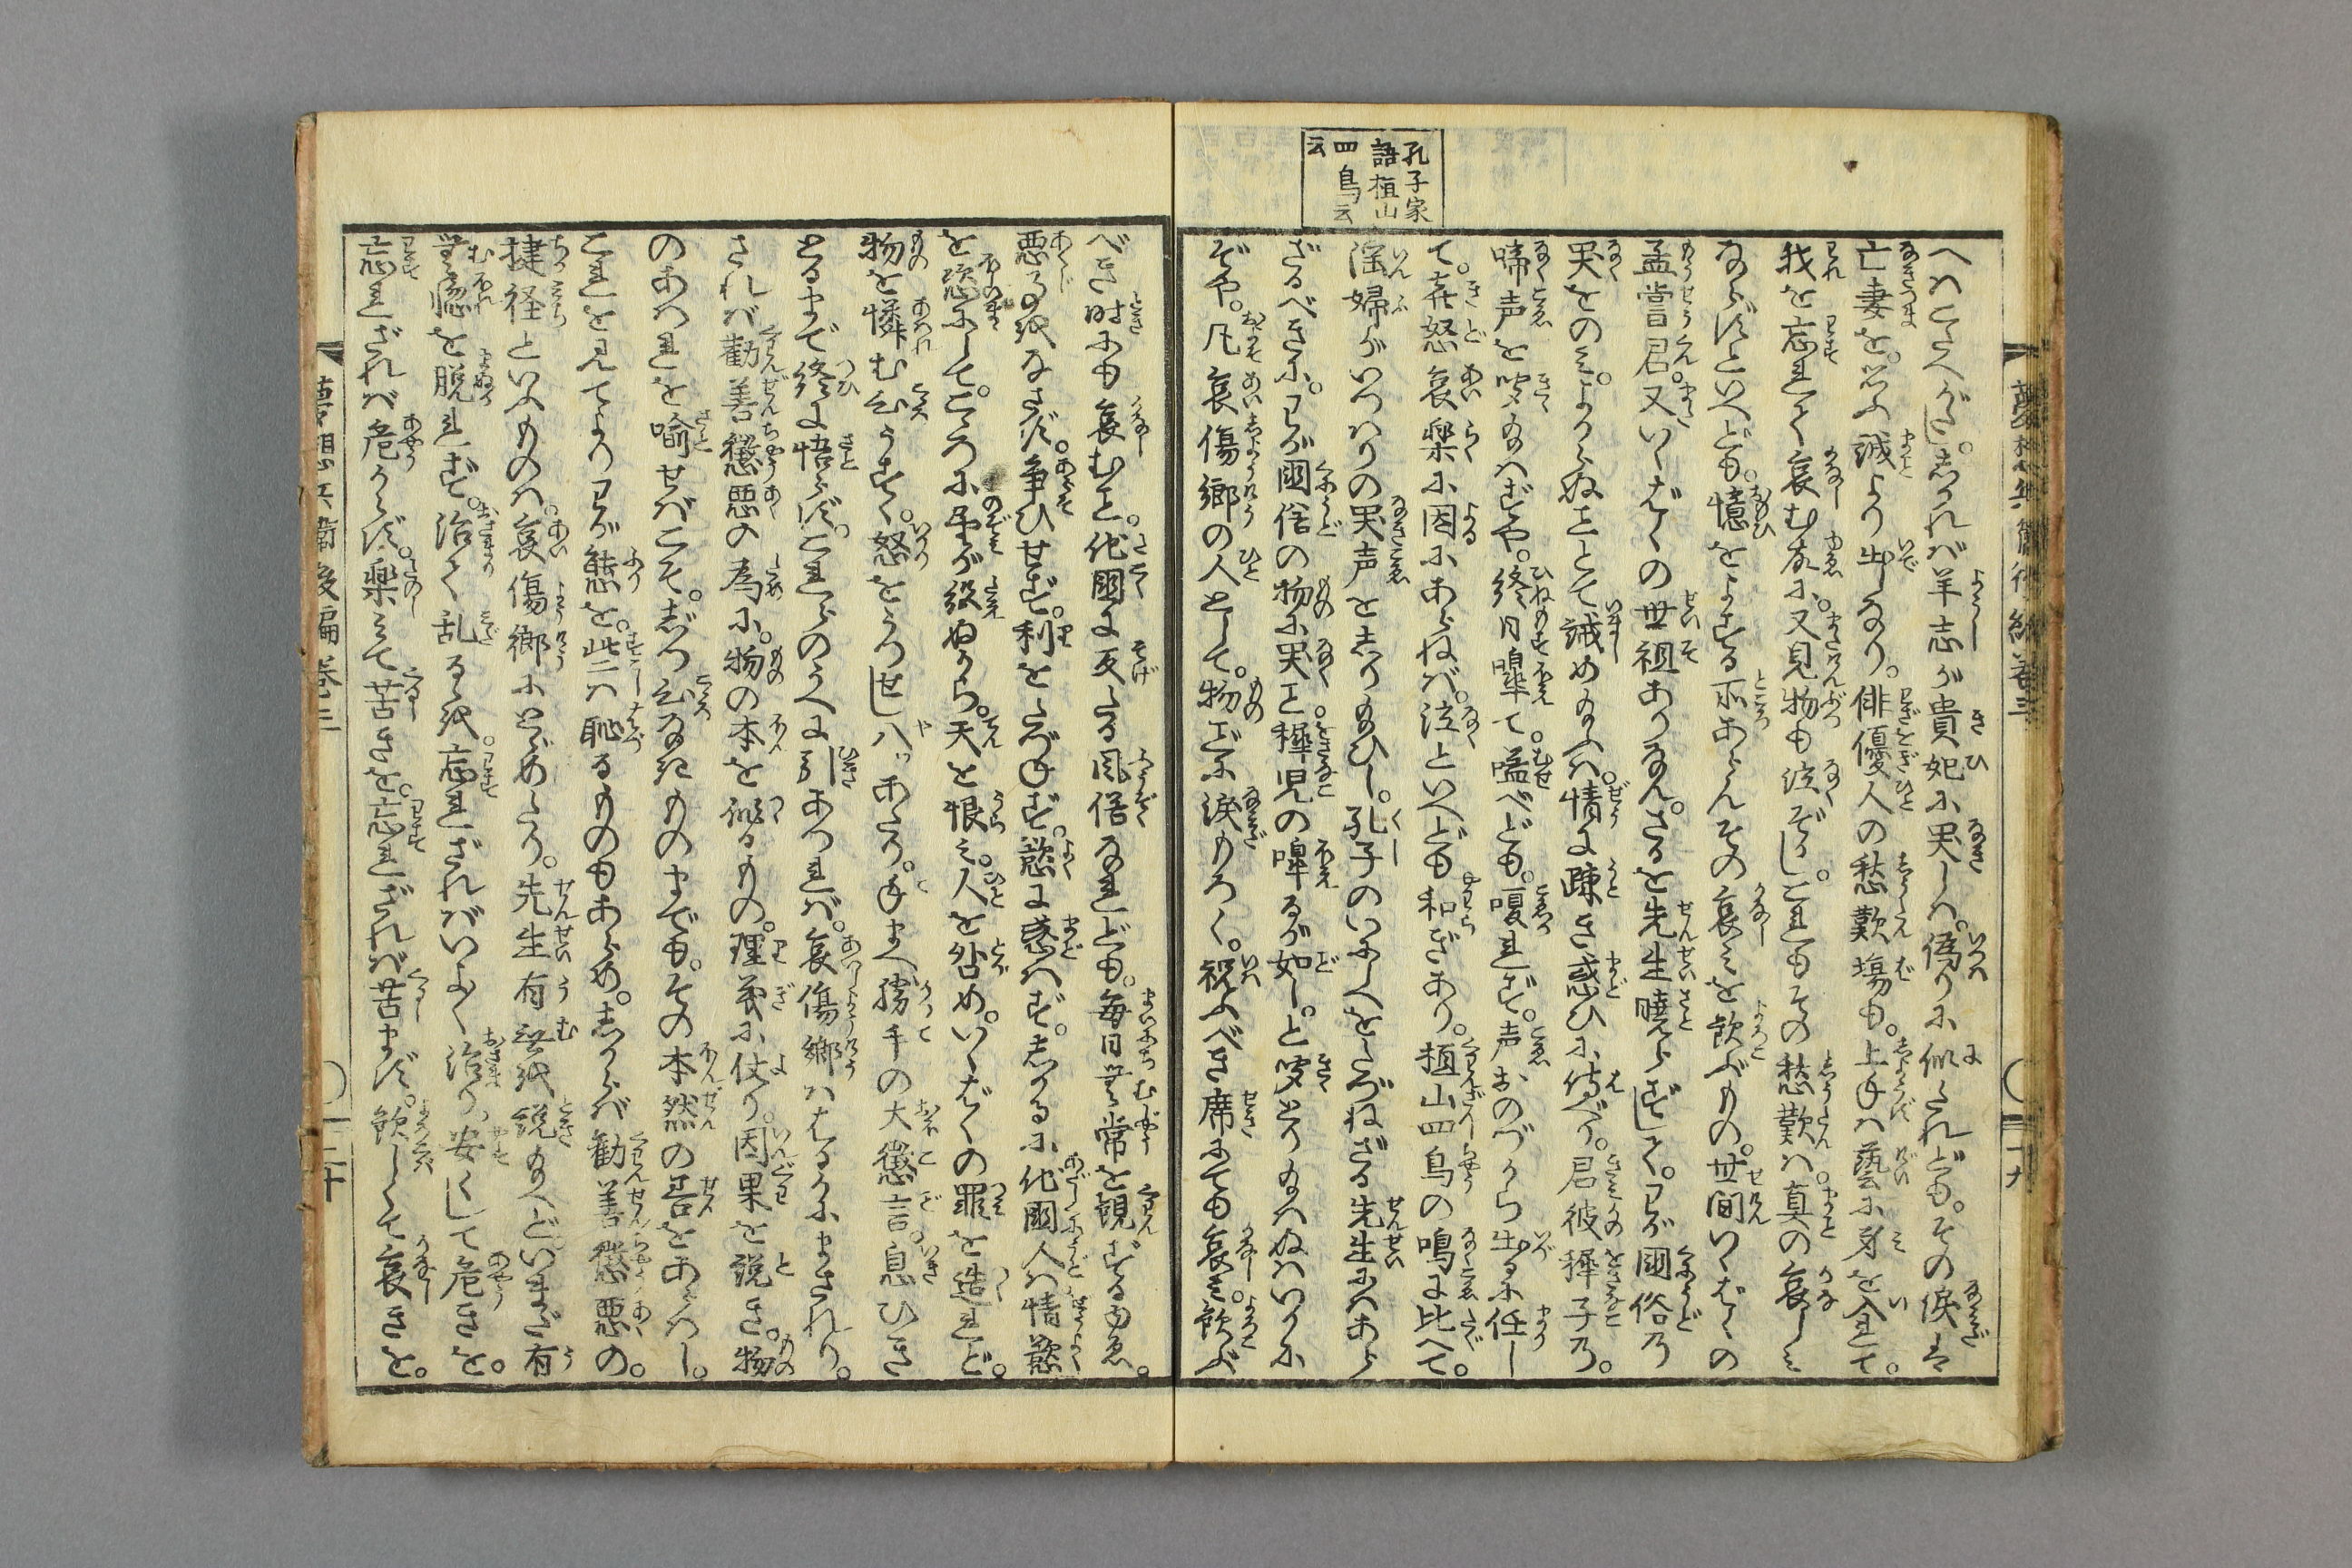 孔子家
語植山
四鳥云
云
へはこたへがたし。しかれば羊志が貴妃に哭しは。偽りに似たれども。その涙は
亡妻を。思ふ誠より出しなり。俳優人の愁歎場も。上手は藝に身を入れて。
我を忘れて哀む故に。又見物も泣ぞかし。これもその愁歎は。真の哀しみ
ならずといへども。憶をよする所あらんその哀みを飲ぶもの。世間いくばくの
孟嘗君。又いくばくの世祖あるなん。さるを先生曉らずして。わが國俗乃
哭をのみ。よからぬことて誡め給ふは。情に疎き惑ひに侍べり。君彼穉子乃。
啼声を聞給はずや。終日嘷て。嗌べども。嗄れず。声おのづから出るに任し
て。喜怒哀樂に因にあらねば。泣といへども和ぎあり。植山四鳥の鳴に比へて。
淫婦がいつはりの哭声をしり給ひし。孔子のいにしへをたづねざる先生にはあら
ざるべきに。わが國俗の物に哭こと。穉児の嘷るが如し。と聞とり給はぬはいかに
ぞや。凡哀傷郷の人として。物ごとに涙もろく。祝ふべき席にても哀み。飲ぶ
べき時にも哀むこと。化國に反たる風俗なれども。毎日無常を観ずるゆゑ。
悪事をなさず。争ひせず。利をたづねず。慾に惑はず。しかるに化國人は情慾
を恣にして。こころに望が絶ぬから。天を恨み。人を咎め。いくばくの罪を造れど。
物を憐む心うすく。怒をうつせし八ッあたり。手まへ勝手の大懲言。息ひき
とるまで終に悟らず。これらのうへに引あつれば。哀傷郷ははるかにまされり。
されば勸善懲惡の為に。物の本を做るもの。理義に仗り。因果を説き。物
のあはれを喩せばこそ。しづ心なきものまでも。その本然の善をあらはし。
これを見てよりわが態を。些ニは恥るものもあらめ。しからば勸善懲惡の。
捷径といふものは。哀傷郷にとゞめたり。先生有無を説給へどいまだ有
無の惚を脱れず。治て乱るゝを。忘れざればいよゝ治り。安くして危きを。
忘れざれば危からず。樂みて苦きを。忘れざれば苦まず。飲しくて哀きを。
夢想兵衛後編巻三